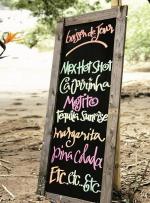 Mex Hot Shot
Caipirinha
Mojito
Tequila Sunrise
margarita
Pina Colada
Etc. Etc. Etc